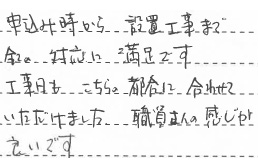 申込み時から 設置工事まで
全の 対応に 満足です
工事日も こちらの 都合に 合わせて
いただけました 職員さんの 感じが
良いです